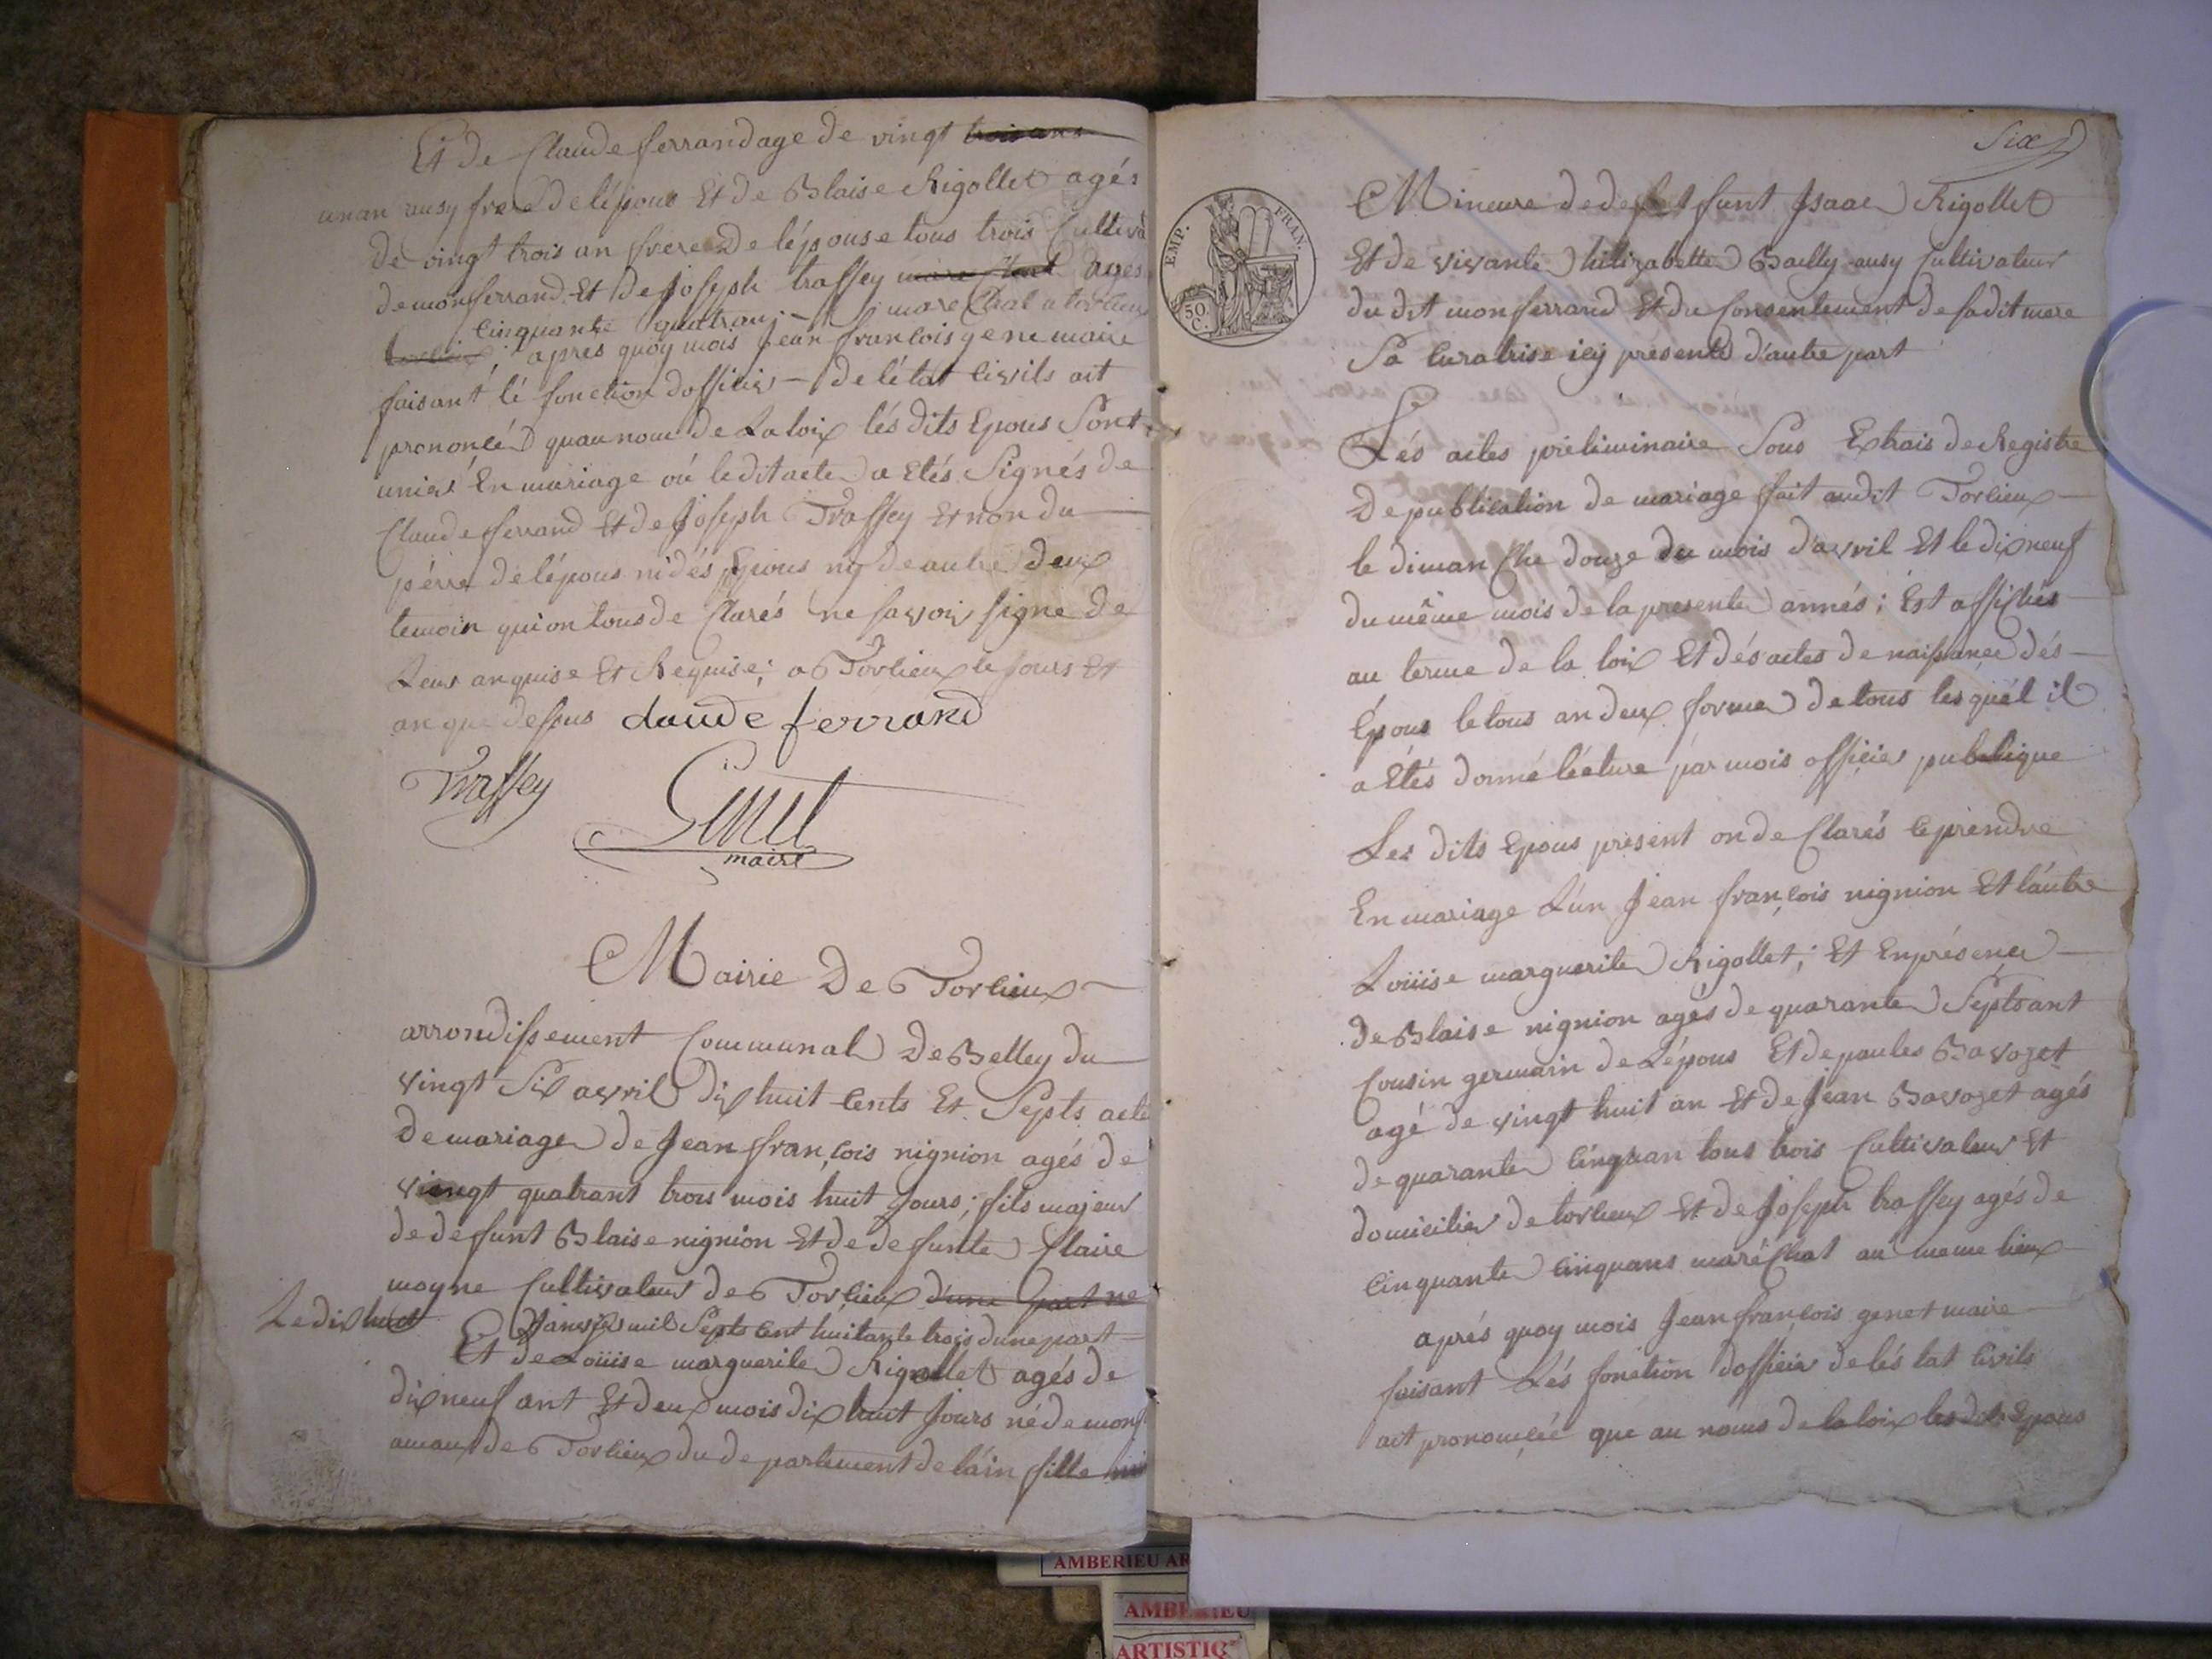 Et de Claude ferrand age de vingt trois ans
unan ausy frere de lépous Et de Blaise Rigollet agés
de vingt trois an frere de lépouse tous trois Cultiva
demonferrand Et de Joseph traffey mare Chat agés
cinquante quatran mare Chal a torlieux
torlieux; aprés quoy mois Jean françois gene maire
faisant lé fonction dofficier - de létat Civils ait
prononcéd quau nom de La loix lés dits Epous Sont
uniés En mariage où ledit acte a Etés Signés de
Claude ferrand Et de Joseph Traffey Et non du
pérre de lépous ni dés Epous ny de autre deux
temoin qui on tous de Clarés ne savoir signe de
Leur anquise Et Requise; a Torlieux le jours Et
an que dessus claude ferrand
Traffey
Genet
maire
Mairie De Torlieux
arrondissement Communal De Belley du
vingt Six avril dix huit Cents Et Septs acte
de mariage de Jean françois nignion agés de
viengt quatrant trois mois huit jours; fils majeur
de défunt Blaise nignion Et de defunte Claire
moyne Cultivateur de Torlieux d'une part ne
Le dix huit Janvier mil Septs Cent huitante trois dune part
Et de Loüise marguerite Rigollet agés de
dix neuf ant Et deux mois dix huit Jours né de monf
amau de Torlieux du departement de láin fille mi
Six
EMP. FRAN.
50 C.
Mineure de defunt Isaac Rigollet
Et de vivante hélizabette Bailly ausy Cultivateur
du dit monferrand Et du Consentement de sadit mere
Sa Curatrise icy presente d'autre part
Lés actes préliminaire Sous Extrais de Registre
De publication de mariage fait audit Torlieux
le diman Che douze du mois d'avril Et le dixneuf
du même mois de la presente annés; Est affichés
au terme de la loix Et dés actes de naissance dés
Epous le tous an deux forme de tous lesquél il
a Etés donné lécture par mois officier publique
Les dits Epous present on de Clarés ce prendre
En mariage L'un Jean françois nignion Et l'autre
Loüise marguerite Rigollet; Et En présence
de Blaise nignion agés de quarante Septs ant
Cousin germain de Lépous Et de paules Bavozet
agé de vingt huit an Et de Jean Bavozet agés
de quarante Cinquan tous trois Cultivateur Et
domicilier de torlieux Et de Joseph traffey agés de
Cinquante cinquans maréChal au meme lieux
aprés quoy mois Jean françois genet maire
faisant Lés fonction dofficier de lés tat Civils
ait prononcéé que au noms de la loix les dits Epous
AMBERIEU AR
AMBERIEU
ARTISTIQ